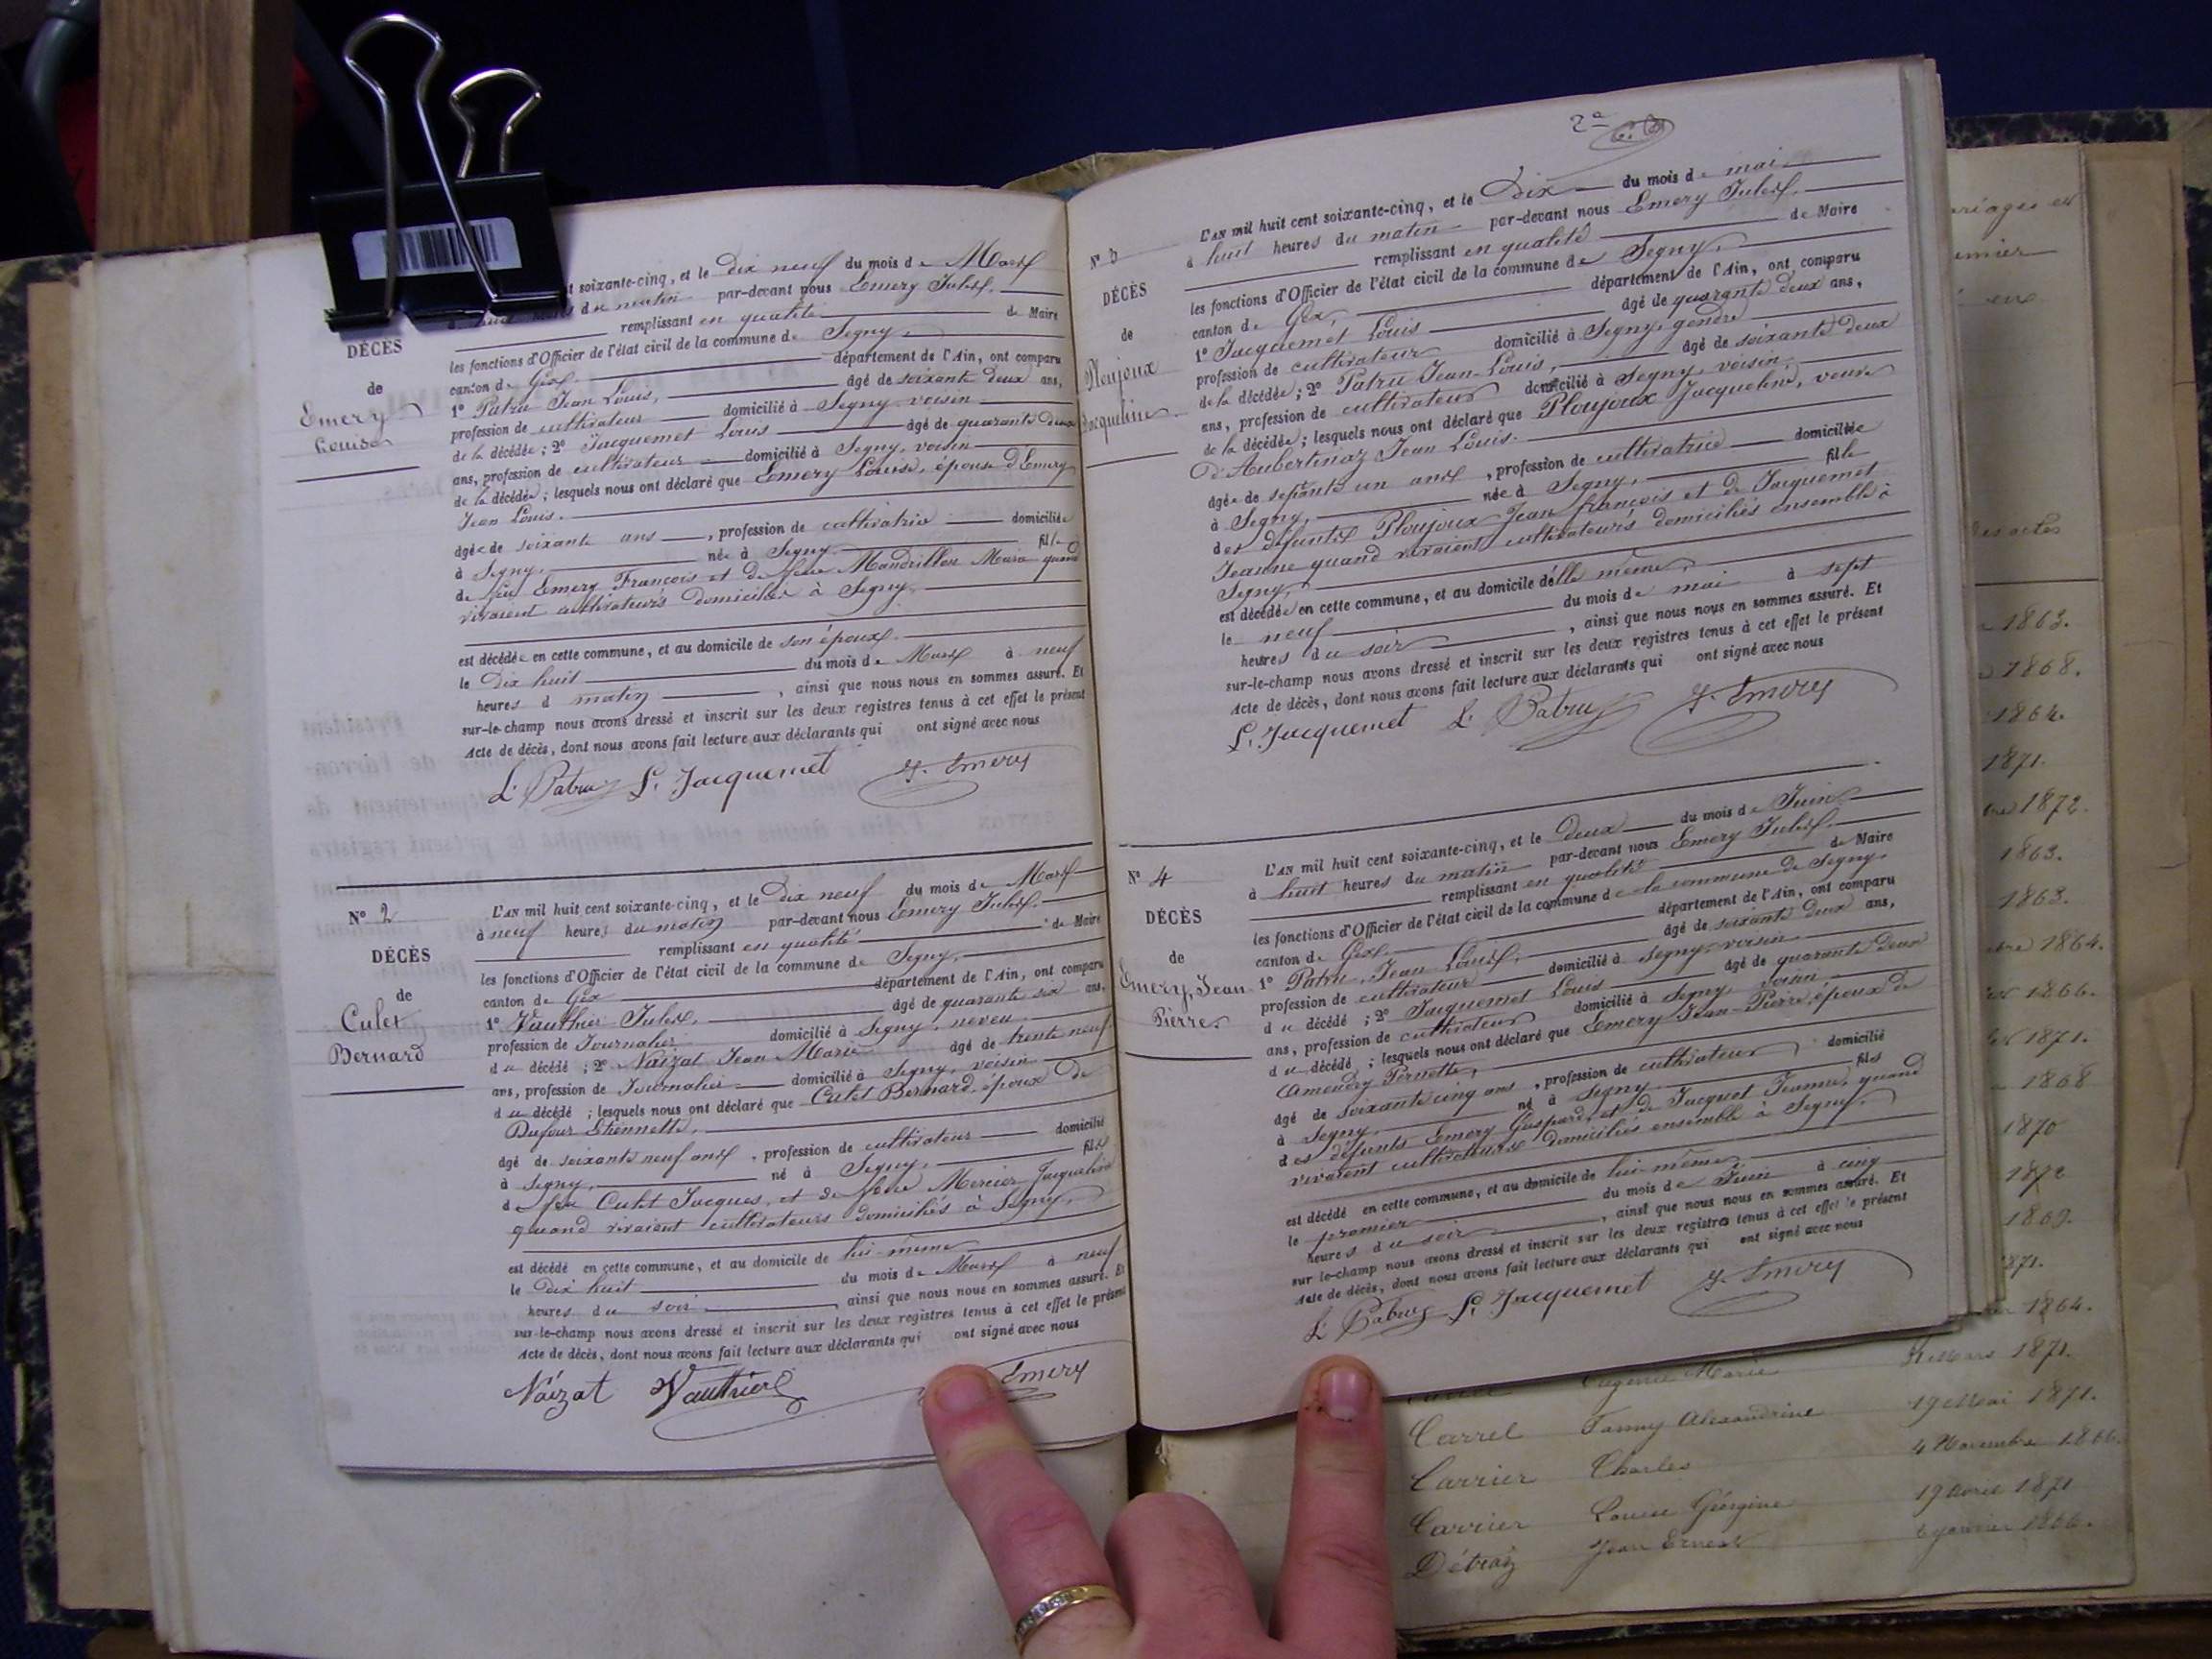 t soixante-cinq, et le Dix neuf du mois de Mars
du matin par-devant nous Emery Jules,
remplissant en qualité de Maire
DÉCÈS
les fonctions d'Officier de l'état civil de la commune de Segny,
de
canton de Gex. département de l'Ain, ont comparu
Emery
Louise
1° Patru Jean Louis, âgé de soixante deux ans,
profession de cultivateur domicilié à Segny voisin
de la décédée ; 2° Jacquemet Louis âgé de quarante deux
ans, profession de cultivateur domicilié à Segny, voisin
de la décédée ; lesquels nous ont déclaré que Emery Louise, épouse d'Emery
Jean Louis.
âgée de soixante ans, profession de cultivatrice domiciliée
à Segny, née à Segny fille
de feu Emery François et de feue Mandrillon Marie quand
vivaient cultivateurs domiciliés à Segny,
est décédée en cette commune, et au domicile de son époux.
le Dix huit du mois de Mars à neuf
heures d matin, ainsi que nous nous en sommes assuré. Et
sur-le-champ nous avons dressé et inscrit sur les deux registres tenus à cet effet le présent
Acte de décès, dont nous avons fait lecture aux déclarants qui ont signé avec nous
L. Patru L. Jacquemet J. Emery
N° 2
DÉCÈS
de
Culet
Bernard
L'AN mil huit cent soixante-cinq, et le Dix neuf du mois de Mars
à neuf heures du matin par-devant nous Emery Jules,
remplissant en qualité de Maire
les fonctions d'Officier de l'état civil de la commune de Segny,
canton de Gex département de l'Ain, ont comparu
1° Vauthier Jules, âgé de quarante six ans,
profession de Journalier domicilié à Segny, neveu
du décédé ; 2° Naizat Jean Marie âgé de trente neuf
ans, profession de Journalier domicilié à Segny, voisin
du décédé ; lesquels nous ont déclaré que Culet Bernard, époux de
Dufour Etiennette,
âgé de soixante neuf ans, profession de cultivateur domicilié
à Segny, né à Segny, fils
de feu Culet Jacques, et de feue Mercier Jacqueline
quand vivaient cultivateurs domiciliés à Segny,
est décédé en cette commune, et au domicile de lui-même
le Dix huit du mois de Mars à neuf
heures du soir, ainsi que nous nous en sommes assuré. Et
sur-le-champ nous avons dressé et inscrit sur les deux registres tenus à cet effet le présent
Acte de décès, dont nous avons fait lecture aux déclarants qui ont signé avec nous
Naizat Vauthier Emery
2e
N° 3
DÉCÈS
de
Ploujoux
Jacqueline
L'AN mil huit cent soixante-cinq, et le Dix du mois de mai
à huit heures du matin par-devant nous Emery Jules,
remplissant en qualité de Maire
les fonctions d'Officier de l'état civil de la commune de Segny,
canton de Gex, département de l'Ain, ont comparu
1° Jacquemet Louis âgé de quarante deux ans,
profession de cultivateur domicilié à Segny, gendre
de la décédée ; 2° Patru Jean-Louis, âgé de soixante deux
ans, profession de cultivateur domicilié à Segny, voisin,
de la décédée ; lesquels nous ont déclaré que Ploujoux Jacqueline, veuve
D'Aubertinaz Jean Louis.
âgée de septante un ans, profession de cultivatrice domiciliée
à Segny, née à Segny, fille
des défunts Ploujoux Jean françois et de Jacquemet
Jeanne quand vivaient cultivateurs domiciliés ensemble à
Segny,
est décédée en cette commune, et au domicile d'elle même,
le neuf du mois de mai à sept
heures du soir, ainsi que nous nous en sommes assuré. Et
sur-le-champ nous avons dressé et inscrit sur les deux registres tenus à cet effet le présent
Acte de décès, dont nous avons fait lecture aux déclarants qui ont signé avec nous
L. Jacquemet L. Patru J. Emery
N° 4
DÉCÈS
de
Emery, Jean
Pierre
L'AN mil huit cent soixante-cinq, et le Deux du mois de Juin
à huit heures du matin par-devant nous Emery Jules,
remplissant en qualité de Maire
les fonctions d'Officier de l'état civil de la commune de la commune de Segny,
canton de Gex. département de l'Ain, ont comparu
1° Patru, Jean Louis, âgé de soixante deux ans,
profession de cultivateur domicilié à Segny, voisin
du décédé ; 2° Jacquemet Louis âgé de quarante deux
ans, profession de cultivateur domicilié à Segny, voisin
du décédé ; lesquels nous ont déclaré que Emery Jean-Pierre, époux de
Amaudry Pernette,
âgé de soixante cinq ans, profession de cultivateur domicilié
à Segny né à Segny fils
des défunts Emery Gaspard, et de Jacquet Jeanne, quand
vivaient cultivateurs domiciliés ensemble à Segny.
est décédé en cette commune, et au domicile de lui-même
le premier du mois de Juin à cinq
heures du soir, ainsi que nous nous en sommes assuré. Et
sur le-champ nous avons dressé et inscrit sur les deux registres tenus à cet effet le présent
Acte de décès, dont nous avons fait lecture aux déclarants qui ont signé avec nous
L. Patru L. Jacquemet J. Emery
1863.
1868.
1864.
1871.
1872.
1863.
1863.
1864.
1866.
1871.
1868
1870
1872
1869.
1871.
1864.
Eugénie Marie Mars 1871.
Carrel Fanny Alexandrine 19 Mai 1871.
Carrier Charles 4 Novembre 1866.
Carrier Louise Géorgine 19 Avril 1871
Détraz Jean Ernest 6 Janvier 1866.